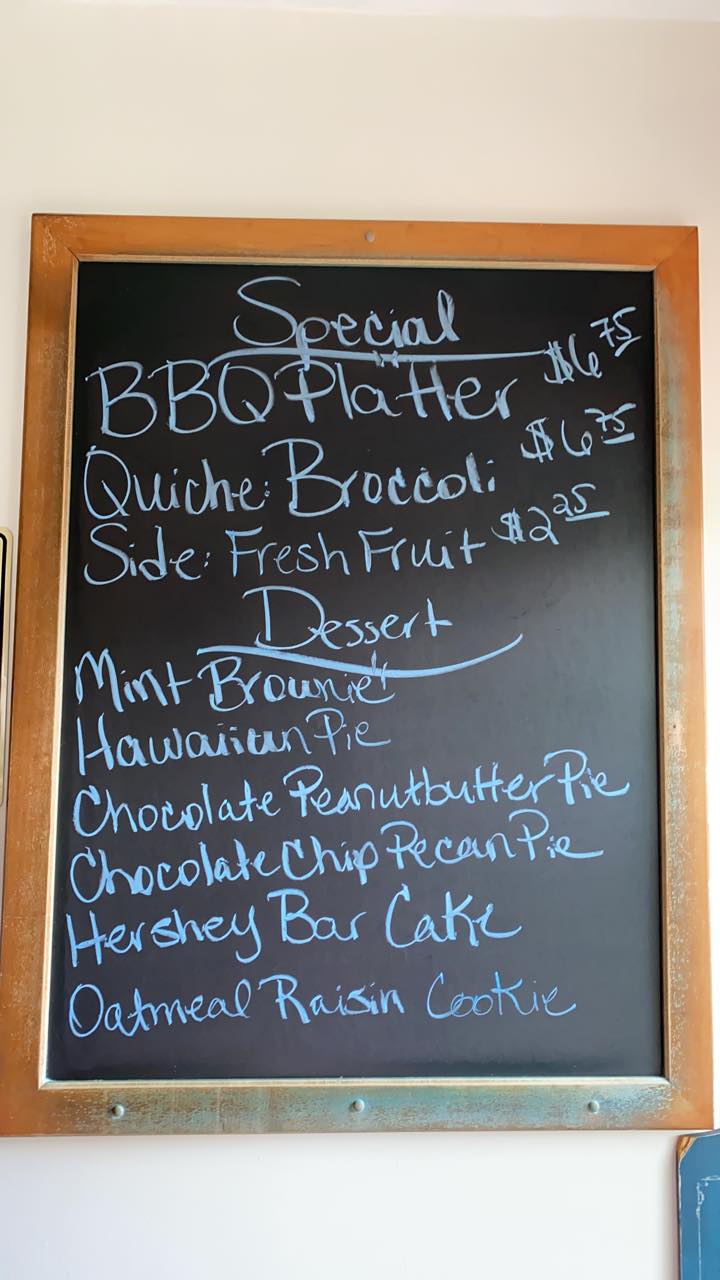 Special
BBQ Platter $6.75
Quiche: Broccoli $6.75
Side: Fresh Fruit $2.25
Dessert
Mint Brownie
Hawaiian Pie
Chocolate Peanutbutter Pie
Chocolate Chip Pecan Pie
Hershey Bar Cake
Oatmeal Raisin Cookie